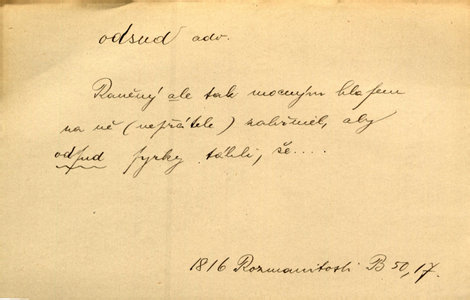 odsud adv.
Raněný ale tak mocným hlasem
na ně (nepřátele) zahřměl, aby
odsud fyrky táhli, že....
1816 Rozmanitosti B 50, 17.